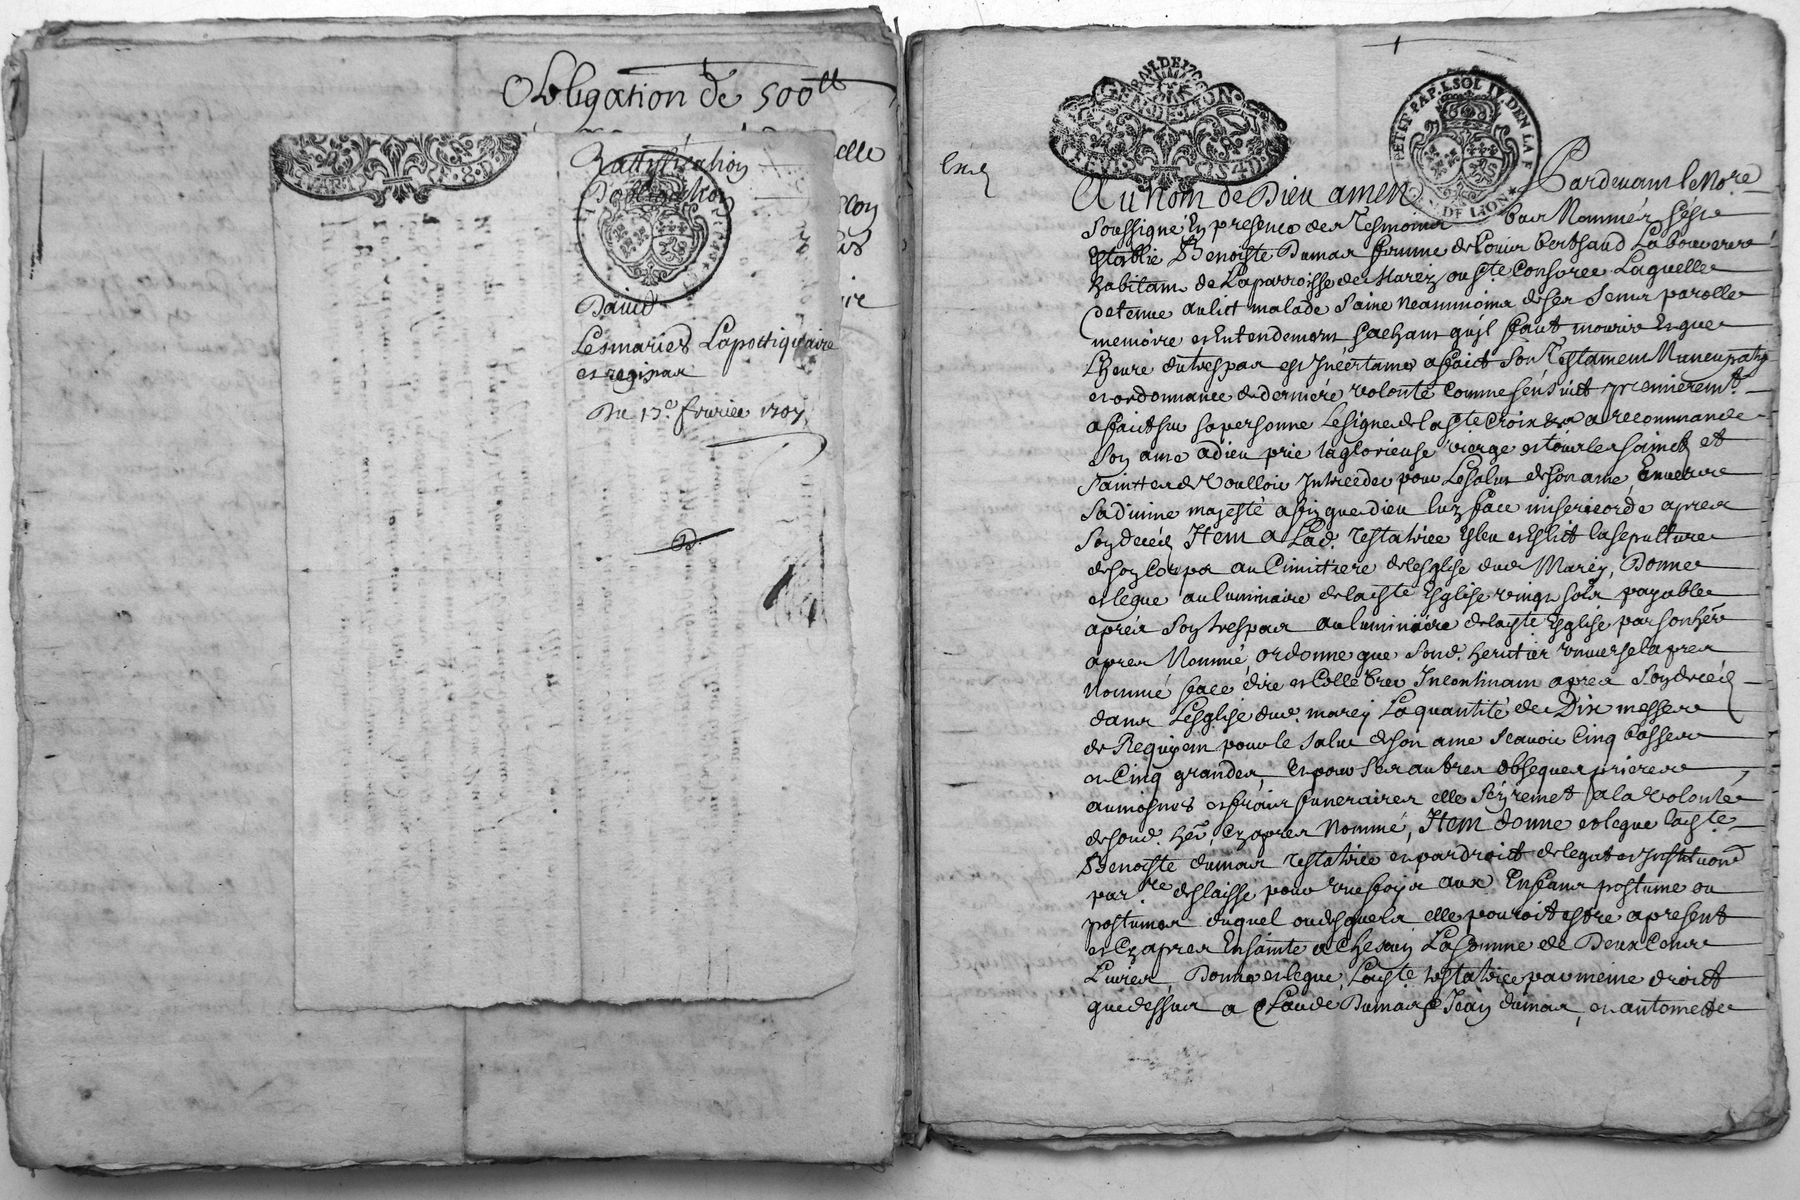 Obligation de 500ᵗᵗ
elle
Rattiffication
D'obligation
David
Lesmariés Lapottiquaire
et
Du 17ᵉ fevrier 1707
GENERAL DE
LION
PETIT PAP. 1. SOL IV DEN LA F
DE LION
Au Nom de Dieu amen Pardevant le Noʳᵉ
soussigné En presence des Tesmoins bas Nommés sest
Establie Benoiste Dumas femme de Louis Berthaud Laboureur
habitant de Laparroisse de Marcy ou sᵗᵉ Consorce Laquelle
detenue au lict malade saine neammoins de ses sens parolle
memoire et Entendement sachant quil faut mourir Et que
Lheure du trespas est Incertaine a faict son Testament Nuncupatif
et ordonnance de derniere volonté comme sensuict premieremᵗ
a faict sur sa personne Le signe de la sᵗᵉ Croix a recommandé
son ame a dieu prié la glorieuse vierge et tous les saincts et
sainttes de voulloir Interceder pour Le salut de son ame Envers
sa divine majesté afin que dieu luy face misericorde apres
son deces Item a Lad. testatrice Esleu et Eslit la sepulture
de son Corps au Cimittiere de lesglise dud Marcy, Donne
et legue au luminaire de ladᵗᵉ Esglise vingt sols payable
aprés son trespas au luminaire de ladᵗᵉ Esglise par son her
apres Nommé, ordonne que sond. heritier universel apres
nommé face dire et Cellebrer Incontinant apres son deces
dans Lesglise dud. marcy La quantité de Dix messes
de Requiem pour le salut de son ame scavoir Cinq basses
et Cinq grandes, Et pour ses autres obseques prieres
aumosnes et frais funeraires elle sen remet a la volonté
de sond. her cy apres Nommé, Item donne et legue ladᵗᵉ
Benoiste dumas testatrice et par droict de legat et Institution
parʳᵉ delaisse pour une fois aux Enfans postume ou
postumes duquel ou desquels elle pouroit estre a present
et cy apres Ensainte a Chescun La somme de Deux Cens
Livres, Donne et legue, Ladᵗᵉ testatrice par meme droict
que dessus a Claude Dumas Jean dumas, et antoinette